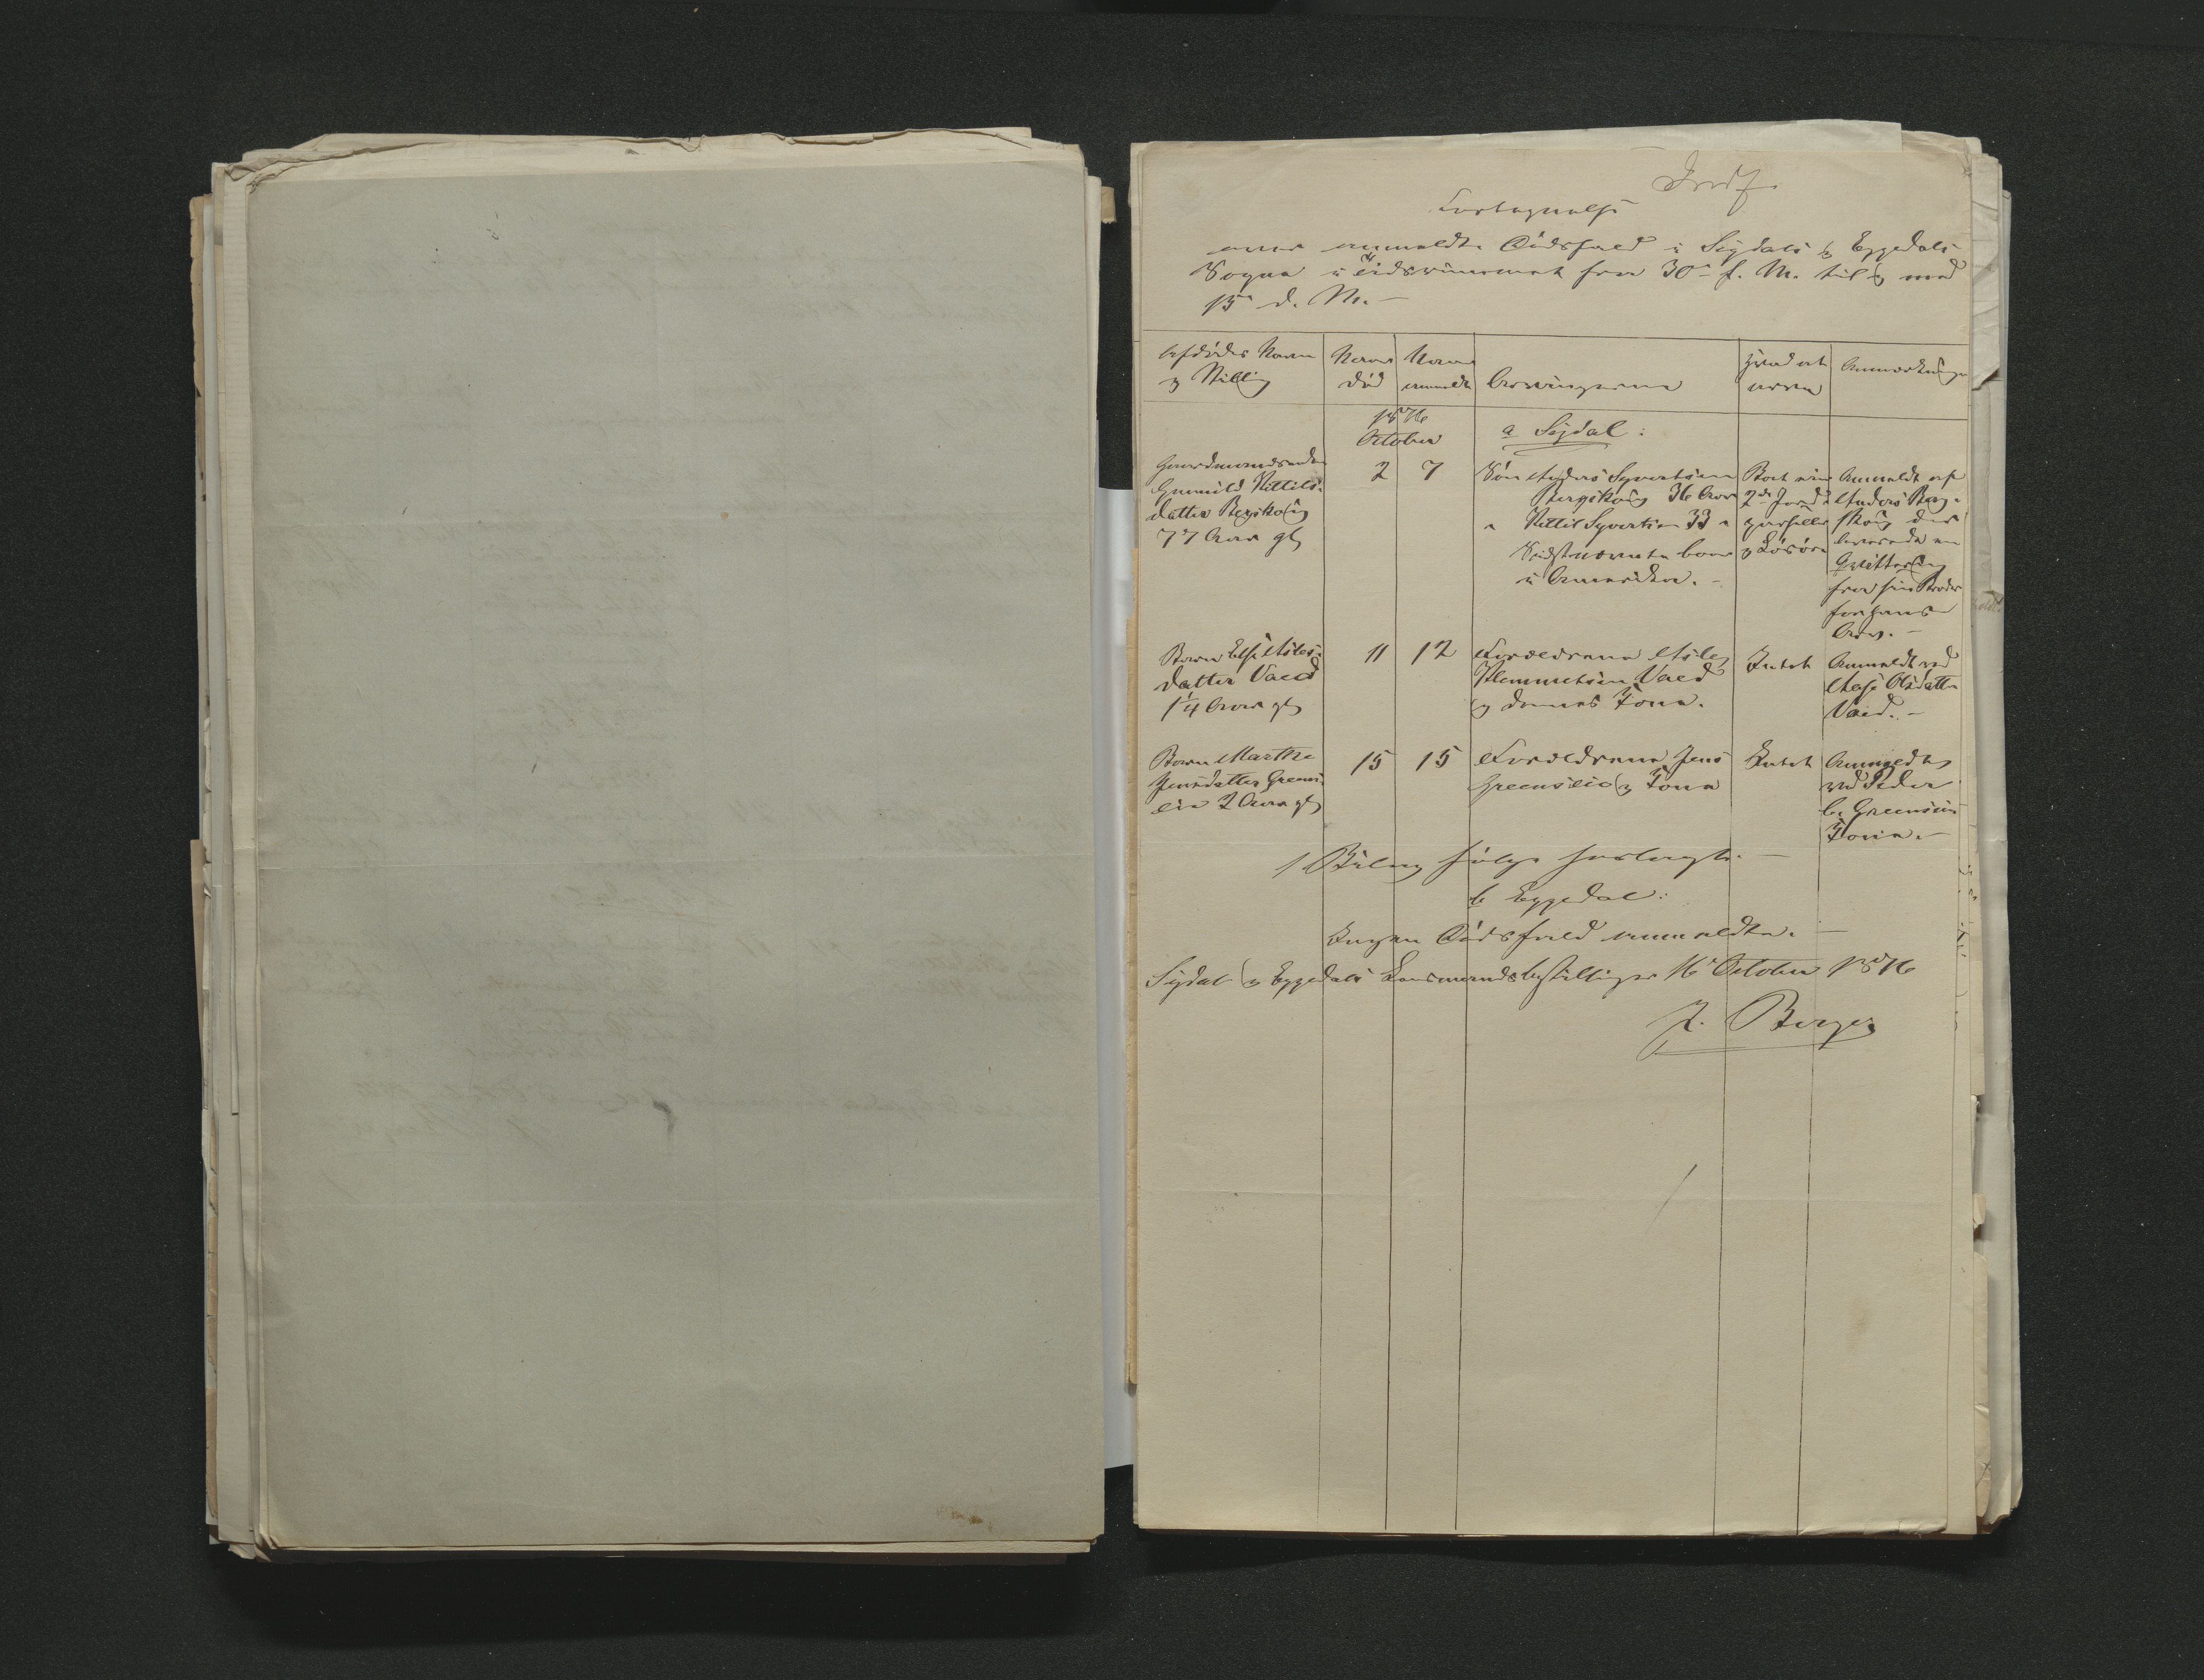 Indf.
Fortegnelse
over anmeldte Dødsfald i Sigdals og Eggedals
Sogne i Tidsrummet fra 30te f. M. til og med
15de d. M. –
Afdødes Navn
og Stilling
Naar
død
Naar
anmeldt
Arvingerne
Hvad at
arve
Anmærkninger
1876
October
a Sigdal:
Gaardmandsenke
Gunnild Kittils-
datter Bergskoug
77 Aar gl
2
7
Søn Anders Syvertsen
Bergskoug 36 Aar
" Kittil Syvertsen 33 "
Sidstnævnte boer
i Amerika. –
Part i
2de Jord-
parseller
og Løsøre
Anmeldt af
Anders Berg-
skoug der
leverede en
Qvittering
fra sin Broder
for hans
Arv. –
Barn Else Asles-
datter Vad
1 1/4 Aar gl
11
12
Forældrene Asle
Klemmetsen Vad
og dennes Kone.
Intet
Anmeldt ved
Aase Olsdatter
Vad. –
Barn Marthe
Jensdatter Greens-
eie 2 Aar gl
15
15
Forældrene Jens
Greenseie og Kone
Intet
Anmeldt
ved Peder
Greenseie
Kone. –
1 Bilag følge forlangte. –
b Eggedal:
Ingen Dødsfald anmeldte. –
Sigdal og Eggedals Lensmandsbestilling 16 October 1876
Berg